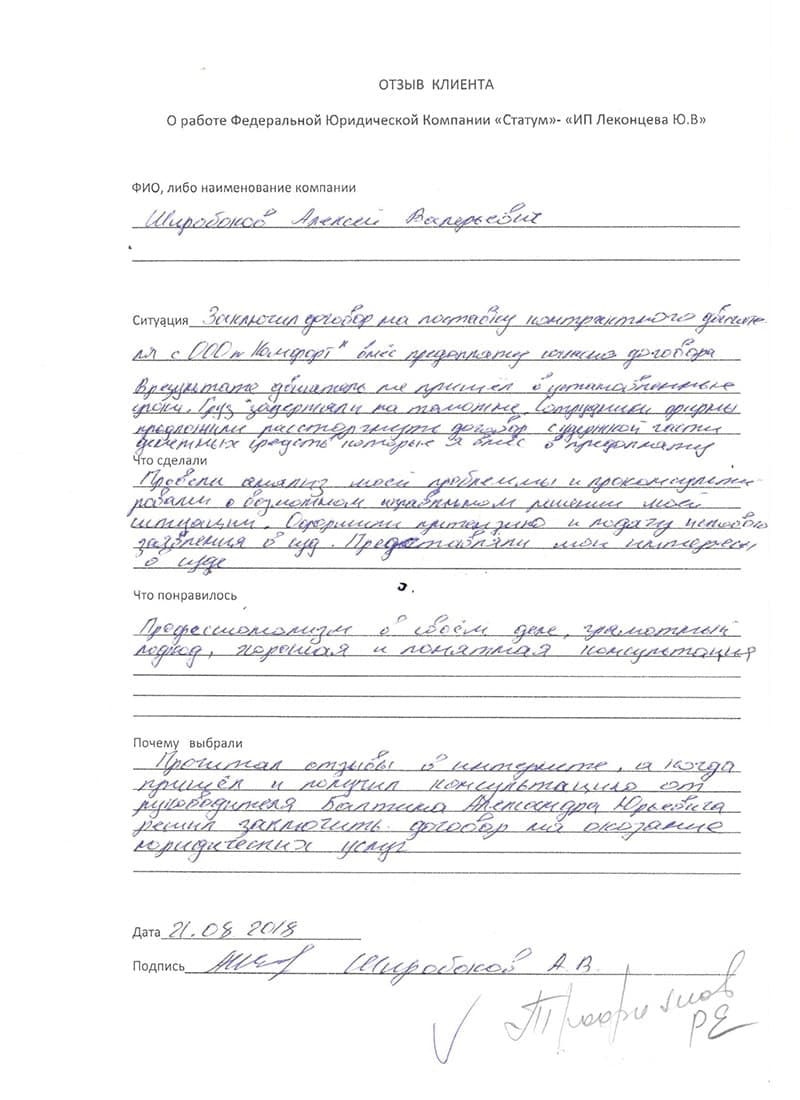 ОТЗЫВ КЛИЕНТА
О работе Федеральной Юридической Компании «Статум»- «ИП Леконцева Ю.В»
ФИО, либо наименование компании
Широбоков Алексей Валерьевич
Ситуация Заключил договор на поставку контрактного двигате-
ля с ООО "Комфорт" внёс предоплату согласно договора
В результате двигатель не пришёл в установленные
сроки. Груз задержали на таможне. Сотрудники фирмы
предложили расторгнуть договор с удержной части
денежных средств которые я внёс в предоплату
Что сделали
Провели анализ моей проблемы и проконсульти-
ровали о возможном правильном решении моей
ситуации. Оформили притензию и подачу искового
заявления в суд. Предоставляли мои интересы
в суде
Что понравилось
Профессионализм в своём деле, грамотный
подход, хорошая и понятная консультация
Почему выбрали
Прочитал отзывы в интернете, а когда
пришёл и получил консультацию от
руководителя Балтина Александра Юрьевича
решил заключить договор на оказание
юридических услуг
Дата 21.08 2018
Подпись Широбоков А.В.
Трофимов
РЕ